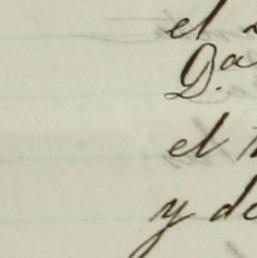 el
D.ª
el
y de